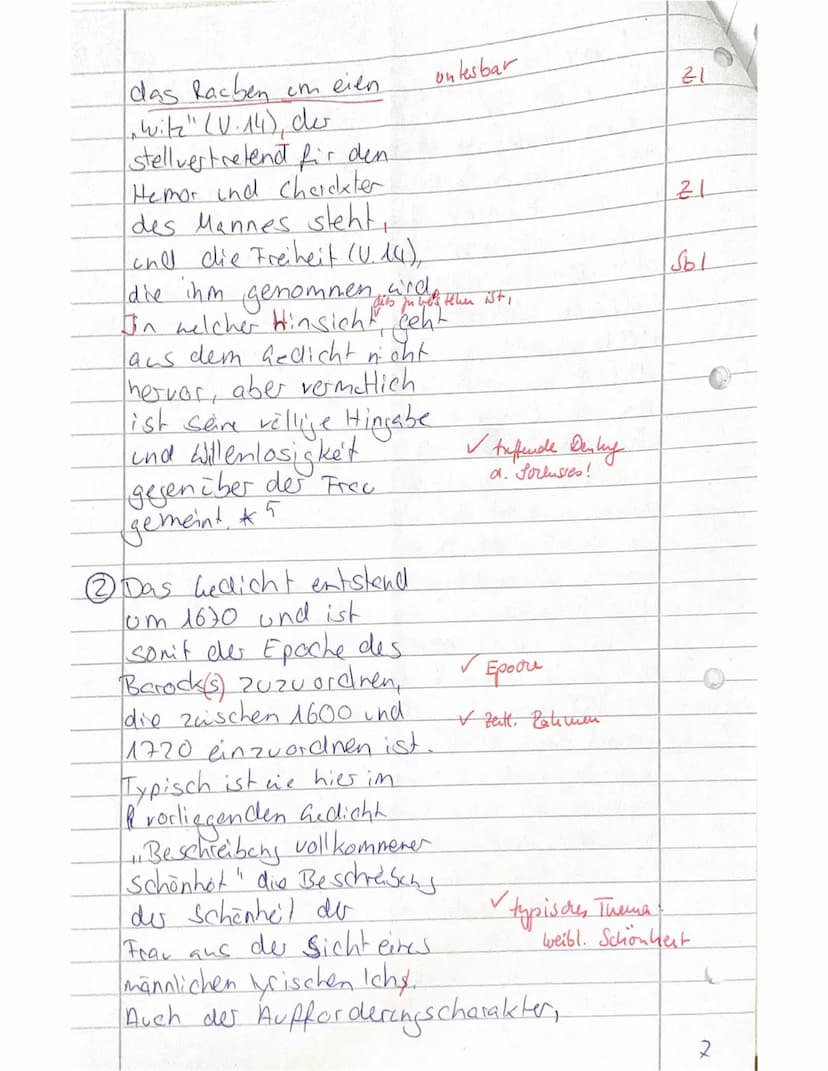 das Rauben um eien unlesbar Z I
„Witz" (V. 14), der
stellvertretend für den
Humor und Charakter Z I
des Mannes steht,
und die Freiheit (V. 14), Sb I
die ihm genommen wird.
dies zu verstehen ist,
In welcher Hinsicht, geht
aus dem Gedicht nicht
hervor, aber vermutlich
ist seine völlige Hingabe
und Willenlosigkeit ✓ treffende Deutung
gegenüber der Frau
gemeint. *5
② Das Gedicht entstand
um 1670 und ist
somit der Epoche des
Barock(s) zuzuordnen, ✓ Epoche
die zwischen 1600 und ✓ zeitl. Rahmen
1720 einzuordnen ist.
Typisch ist wie hier im
vorliegenden Gedicht
„Beschreibung vollkommener
Schönheit" die Beschreibung
der Schönheit der ✓ typisches Thema:
Frau aus der Sicht eines weibl. Schönheit
männlichen lyrischen Ichs.
Auch der Aufforderungscharakter,
2